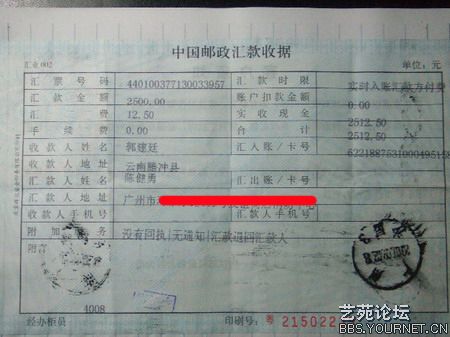 中国邮政汇款收据
汇业002 单位：元
汇票号码 440100377130033957 汇款时限 实时入账汇款方付费
汇款金额 2500.00 账户扣款金额 0.00
汇费 12.50 实收现金 2512.50
手续费 0.00 合计 2512.50
收款人姓名 郭建廷 汇入账/卡号
收款人地址 云南腾冲县
汇款人姓名 陈健勇 汇出账/卡号
汇款人地址 广州市
收款人手机号 汇款人手机号
附加业务 没有回执|无通知|汇款退回汇款人
附言
4008
经办柜员 印刷号： 粤 215022
艺苑论坛
BBS.YOURNET.CN